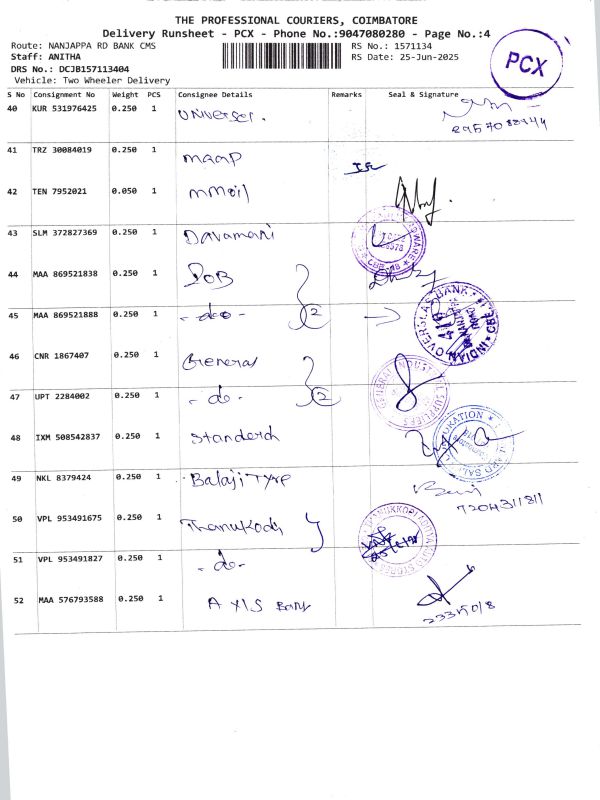 THE PROFESSIONAL COURIERS, COIMBATORE
Delivery Runsheet - PCX - Phone No.:9047080280 - Page No.:4
Route: NANJAPPA RD BANK CMS
RS No.: 1571134
Staff: ANITHA
RS Date: 25-Jun-2025
DRS No.: DCJB157113404
Vehicle: Two Wheeler Delivery
PCX
S No Consignment No Weight PCS Consignee Details Remarks Seal & Signature
40 KUR 531976425 0.250 1 Universel.
41 TRZ 30084019 0.250 1 maap
42 TEN 7952021 0.050 1
43 SLM 372827369 0.250 1 Davamani
44 MAA 869521838 0.250 1 IOB
45 MAA 869521888 0.250 1 - do - 2
INDIAN OVERSEAS BANK CBE
46 CNR 1867407 0.250 1 General
47 UPT 2284002 0.250 1 - do - 2
48 IXM 508542837 0.250 1 Standerd
49 NKL 8379424 0.250 1 Balaji Type
7204311811
50 VPL 953491675 0.250 1 Thanukodi
51 VPL 953491827 0.250 1 - do -
52 MAA 576793588 0.250 1 AXIS Bank